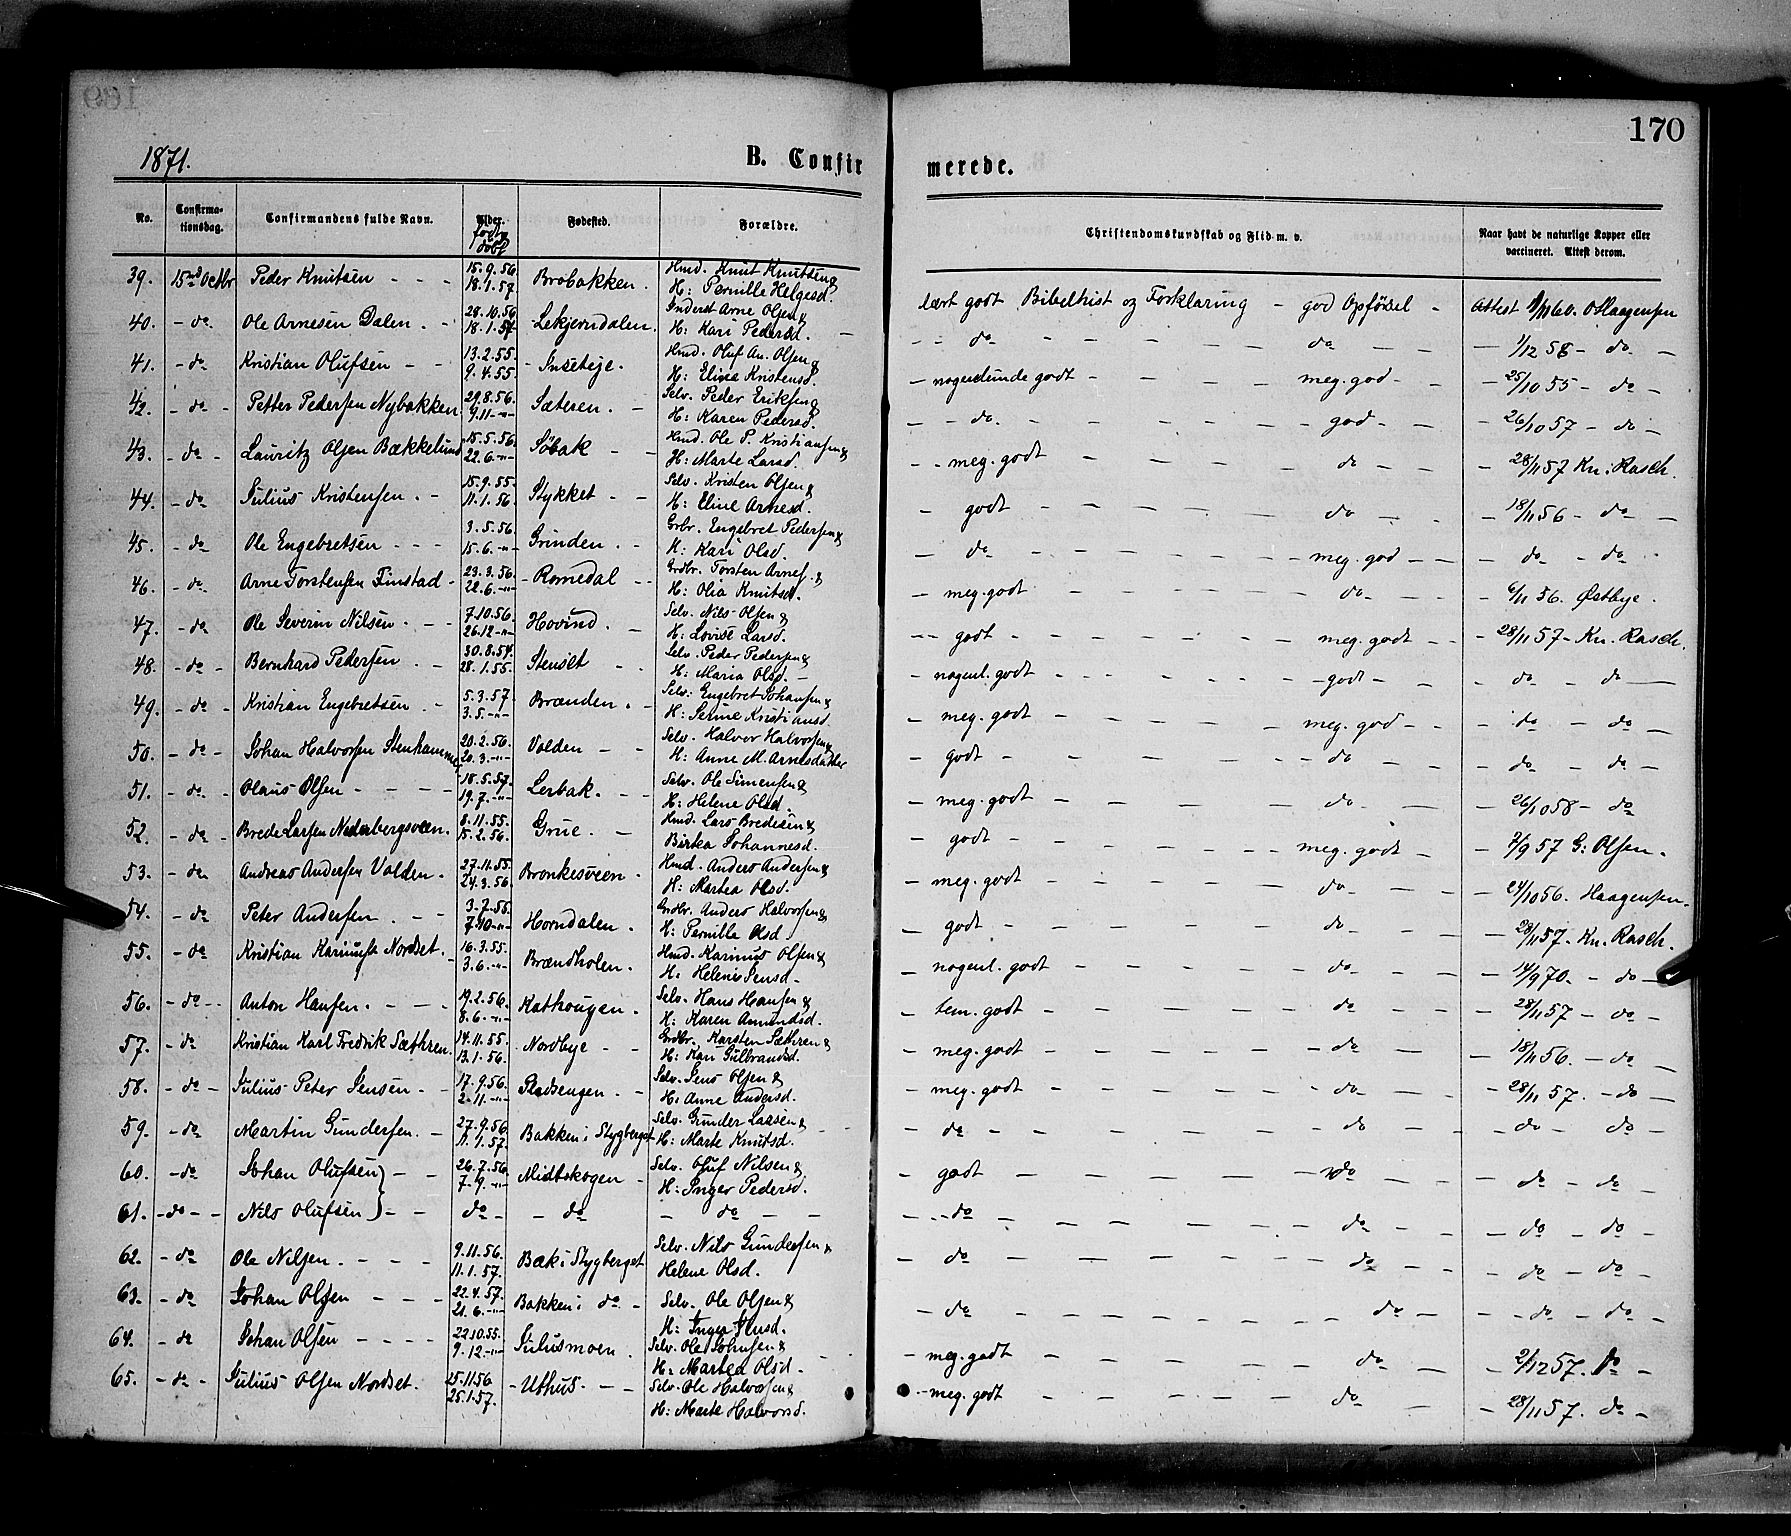 170
1871.
B. Confirmerede.
No. Confirmationsdag. Confirmandens fulde Navn. Alder. født døbt Fødested. Forældre. Christendomskundskab og Flid m. v. Naar havt de naturlige Kopper eller vaccineret. Attest derom.
39. 15de Octbr Peder Knutsen - - - 15.9.56 18.1.57 Brobakken. Hmd. Knut Knutsen & H: Pernille Helgesd. lært godt Bibelhist og Forklaring - god Opførsel - Attest 1/11 60. OHaagensen
40. - do. Ole Arnesen Dalen. - 28.10.56 18.1.57 - Lekjerndalen. Inderst Arne Olsen & H: Kari Pedersd. - - - do - - - - - do - - - 1/12 58 - do -
41. - do Kristian Olufsen - - 13.2.55. 9.4.55 - Inseteje. Hmd. Oluf An. Olsen & H: Elisa Kristensd. - nogenlunde godt - - - - meg. god - - - 25/10 55 - do -
42. - do - Petter Pedersen Nybakken. 29.8.56. 9.11 -"- Sæteren. - Selv. Peder Eriksen & H: Karen Pedersd. - - do. - - - - god - - - 26/10 57 - do -
43. - do - Lauritz Olsen Bækkelund 15.5.56. 22.6.-"- Søbak - - Hmd. Ole P. Kristiansen & H: Marte Larsd. - - meg. godt - - - - do - - - 28/11 57 Kn. Rasch.
44. - do Julius Kristensen. - 15.9.55. 11.1.56. Stykket - - Selv. Kristen Olsen & H: Eline Arnesd. - godt - - - - - do - - - 18/11 56 - do -
45. - do Ole Engebretsen - - - 3.5.56. 15.6.-"- Grinden. - Grbr. Engebret Pedersen & H: Kari Olsd. - do - - - - - meg. god - - - do - do
46. - do. Arne Torstensen Finstad - 23.3.56. 22.6.-"- - Romedal - - Grdbr. Torsten Arnes. & H: Olia Knutsd. - meg. godt - - - - - do - - - 6/11 56. Østbye.
47. - do - Ole Severin Nilsen. - - 7.10.56. 26.12-"- Hovind. - Selv. Nils Olsen & H: Lovise Larsd. - - godt - - - - - meg. godt - - - 28/11 57 - Kn. Rasch.
48. - do - Bernhard Pedersen. - 30.8.54. 28.1.55. Stenset - - Selv. Peder Pedersen & H: Maria Olsd. - - nogenl. godt - - - - - god - - - do - do -
49. - do - Kristian Engebretsen. - 5.3.57. 3.5.-"- Brænden. - Selv. Engebret Johansen & H: Serine Kristiansd. - meg. godt - - - - - meg. god - - - do - do -
50. - do - Johan Halvorsen Stenhammer 20.2.56. 20.3.-"- Volden - - Selv. Halvor Halvorsen & H: Anne M. Arnesdatter - godt - - - - - do - - - do - do -
51. - do. - Olaus Olsen - - - - 18.5.57. 19.7.-"- Lerbak. - - Selv. Ole Simensen & H: Helene Olsd. - meg. godt - - - - do - - - 26/10 58 - do
52. - do - Brede Larsen Nederbergsveen. 8.11.55. 15.2.56. Grue. - Hmd. Lars Bredesen & Birtea Johannesd. - godt - - - - - meg. godt - - 7/9 57 G: Olsen.
53. - do Andreas Andersen Volden. - 27.11.55. 24.3.56. Bronkesveen - Hmd. Anders Andersen & H: Martea Olsd. - meg. godt - - - - do - - - 24/10 56. Haagensen.
54. - do Peter Andersen. - - 3.7.55. 7.10-"- Horndalen. - Grdbr. Anders Halvorsen & H: Pernille Olsd. - godt - - - - do - - - 28/11 57. Kn. Rasch.
55. - do Kristian Nordset. - 16.3.55. 3.6.-"- Brændholen. - Olsen & H: Helene Jensd - - nogenl. godt - - - - do - - - 14/9 70. - do -
56. - do - Anton Hansen. - - - 19.2.56. 8.6.-"- Kathougen - Selv. Hans Hansen & H: Karen Amundsd. - tem. godt - - - - do - - - 28/11 57 - do -
57. - do Kristian Karl Fredrik Sæthren. 14.11.55. 13.1.56. - Nordbye - - Grdbr. Karsten Sæthren & H: Kari Gulbrandsd. - meg. godt - - - - do - - - 18/11 56. - do
58. - do - Julius Peter Jensen - - 17.9.56. 2.11.-"- Pladsengen. - Selv. Jens Olsen & H: Anne Andersd. - meg. godt - - - - do - - - 28/11 57. - do -
59. - do Martin Gundersen. - 27.9.56 11.1.57. Bakken i Stygberget Selv. Gunder Larsen & H: Marte Knutsd. - do - - - - - do - - - do - do -
60. - do Johan Olufsen - - 26.7.56. 7.9.-"- Midtskogen - Selv. Oluf Nilsen & H: Inger Pedersd. - godt - - - - - do - - - do - do -
61. - do - - Nils Olufsen - - do - do - do - - - do - - - - do - - - do - do -
62. - do Ole Nilsen. - - - 9.11.56. 11.1.57. Bæk i Stygberget Selv. Nils Gundersen & Helene Olsd. - do - - - - - do - - - do - do -
63. - do Johan Olsen - - - 22.4.57. 21.6.-"- Bakken i do - - Selv. Ole Olsen & H: Inger Jensd. - do - - - - - do - - - do - do -
64. - do Johan Olsen - - - - 22.10.55. 9.12.-"- Julusmoen. Selv. Ole Johnsen & H: Martea Olsd - - meg. godt - - - - do - - - 2/12 57. do -
65. - do - Julius Olsen Nordset. 25.11.56 25.1.57. - Uthus. - - Selv. Ole Halvorsen & H: Marte Halvorsd. - meg. godt - - - - do - - - 28/11 57. do -